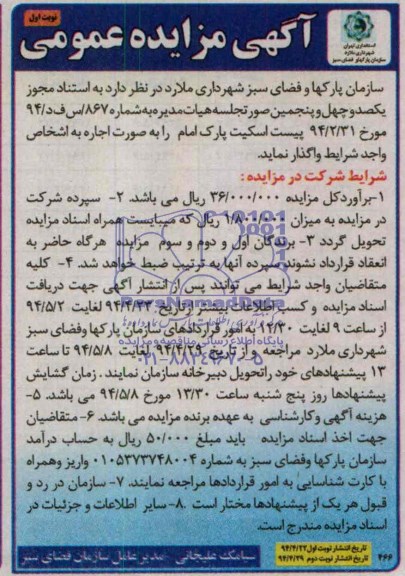 نوبت اول
آگهی مزایده عمومی
استانداری تهران
شهرداری ملارد
سازمان پارکها و فضای سبز
سازمان پارکها و فضای سبز شهرداری ملارد در نظر دارد به استناد مجوز
یکصد و چهل و پنجمین صورتجلسه هیات مدیره به شماره ۸۶۷/س ف د/۹۴
مورخ ۹۴/۲/۳۱ پیست اسکیت پارک امام را به صورت اجاره به اشخاص
واجد شرایط واگذار نماید.
شرایط شرکت در مزایده :
۱- برآورد کل مزایده ۳۶/۰۰۰/۰۰۰ ریال می باشد. ۲- سپرده شرکت
در مزایده به میزان ۱/۸۰۰/۰۰۰ ریال که میبایست همراه اسناد مزایده
تحویل گردد ۳- برندگان اول و دوم و سوم مزایده هرگاه حاضر به
انعقاد قرارداد نشوند سپرده آنها به ترتیب ضبط خواهد شد. ۴- کلیه
متقاضیان واجد شرایط می توانند پس از انتشار آگهی جهت دریافت
اسناد مزایده و کسب اطلاعات بیشتر از تاریخ ۹۴/۴/۲۳ لغایت ۹۴/۵/۲
از ساعت ۹ لغایت ۱۲/۳۰ به امور قراردادهای سازمان پارکها و فضای سبز
شهرداری ملارد مراجعه و از تاریخ ۹۴/۴/۲۹ لغایت ۹۴/۵/۸ تا ساعت
۱۳ پیشنهادهای خود را تحویل دبیرخانه سازمان نمایند . زمان گشایش
پیشنهادها روز پنج شنبه ساعت ۱۳/۳۰ مورخ ۹۴/۵/۸ می باشد. ۵-
هزینه آگهی و کارشناسی به عهده برنده مزایده می باشد. ۶- متقاضیان
جهت اخذ اسناد مزایده باید مبلغ ۵۰/۰۰۰ ریال به حساب درآمد
سازمان پارکها و فضای سبز به شماره ۰۱۰۵۳۷۳۷۴۸۰۰۴ واریز و همراه
با کارت شناسایی به امور قراردادها مراجعه نمایند. ۷- سازمان در رد و
قبول هر یک از پیشنهادها مختار است .۸- سایر اطلاعات و جزئیات در
اسناد مزایده مندرج است.
تاریخ انتشار نوبت اول ۹۴/۴/۲۲
تاریخ انتشار نوبت دوم ۹۴/۴/۲۹
سیامک علیخانی - مدیر عامل سازمان فضای سبز
۴۶۶
ParsNamadData
پایگاه اطلاع رسانی مناقصه و مزایده
۰۲۱-۸۸۳۴۹۶۷۰-۵